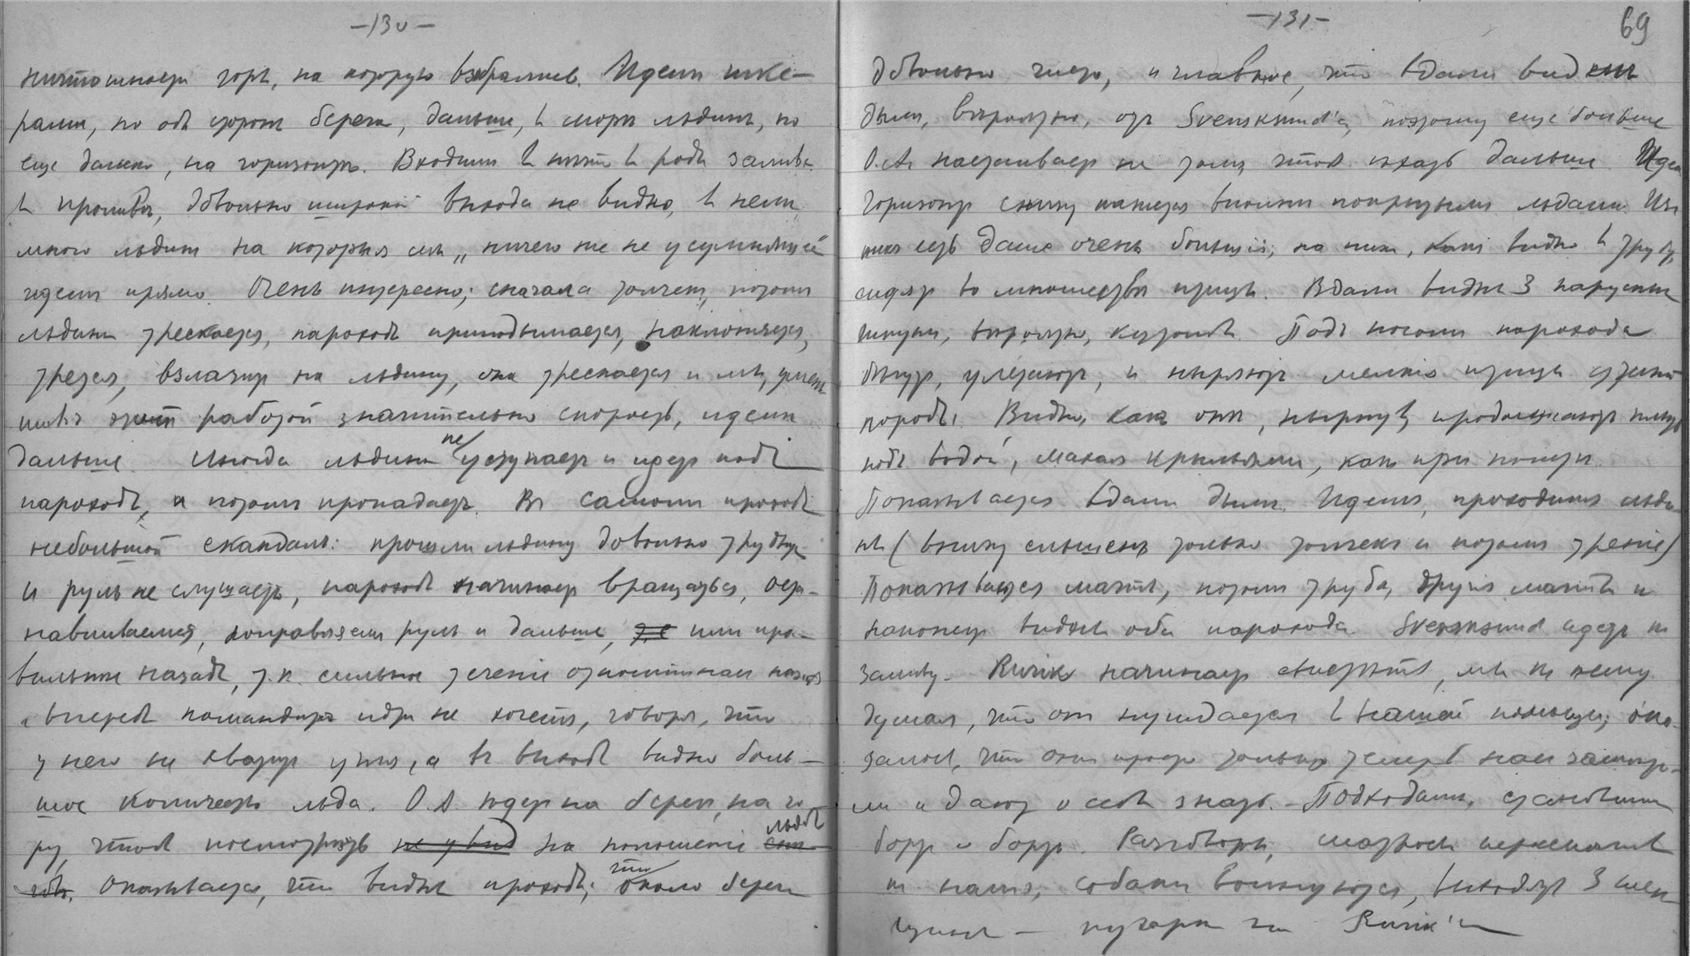 —130—
ничтожнаго горѣ, на которую взобрались. Идемъ шхе-
рами, по обѣ стороны берега, дальше, въ морѣ льдины, но
еще далеко, на горизонтѣ. Входимъ въ родѣ залива
въ проливъ, довольно широкій выхода не видно, въ немъ
много льдинъ на которыя мы „ничего же не усумнящеся"
идемъ прямо. Очень интересно; сначала толчекъ, потомъ
льдина трескается, пароходъ приподымается, наклоняется,
трется, взлазитъ на льдину, она трескается и мы, умень-
шивъ этой работой значительно скорость, идемъ
дальше. Иногда льдина не уступаетъ и идетъ подъ
пароходъ, а потомъ пропадаетъ. Въ самомъ проходѣ
небольшой скандалъ: прошли льдину довольно трудную
и руль не слушаетъ, пароходъ начинаетъ вращаться, оста-
навливаемся, поправляемъ руль и дальше, или пра-
вильнѣе назадъ, т.к. сильное теченіе отжимаетъ насъ назадъ
а впередъ командиръ идти не хочетъ, говоря, что
у него не хватитъ угля, а въ выходѣ видно боль-
шое количество льда. О.А ѣдетъ на берегъ, на го-
ру, чтобъ посмотрѣть на положеніе льдовъ
Оказывается, что видѣнъ проходъ; что около берега
—131—
69
довольно чисто, и главное, что вдали виденъ
дымъ, вѣроятно, отъ Svensksund'a, поэтому еще больше
О.А. настаиваетъ на томъ, чтобъ ѣхать дальше. Идемъ
Горизонтъ снизу кажется вполнѣ покрытымъ льдами. Изъ
нихъ есть даже очень большія; на нихъ, какъ видно въ трубу,
сидятъ во множествѣ птицы. Вдали видны 3 парусныя
шкуны, вѣроятно, китоловы. Подъ носомъ парохода
бѣгутъ, улетаютъ, и ныряютъ мелкія птицы
породы. Видно, какъ онѣ, нырнувъ продолжаютъ плыть
подъ водой, махая крыльями, какъ при полетѣ.
Показывается вдали дымъ. Идемъ, проходимъ льди-
ны (внизу слышенъ только толчекъ и потомъ треніе)
Показывается мачта, потомъ труба, другія мачты и
наконецъ видны оба парохода. Svensksund идетъ къ
заливу. Rurik начинаетъ свистѣть, мы къ нему
думая, что онъ нуждается въ нашей помощи; ока-
залось, что они просто только теперь насъ замѣти-
ли и даютъ о себѣ знать. — Подходимъ, становимся
бортъ о бортъ. Разговоры, матросы
къ намъ, собаки волнуются, выходятъ 3 жен-
щины — съ Rurik'a